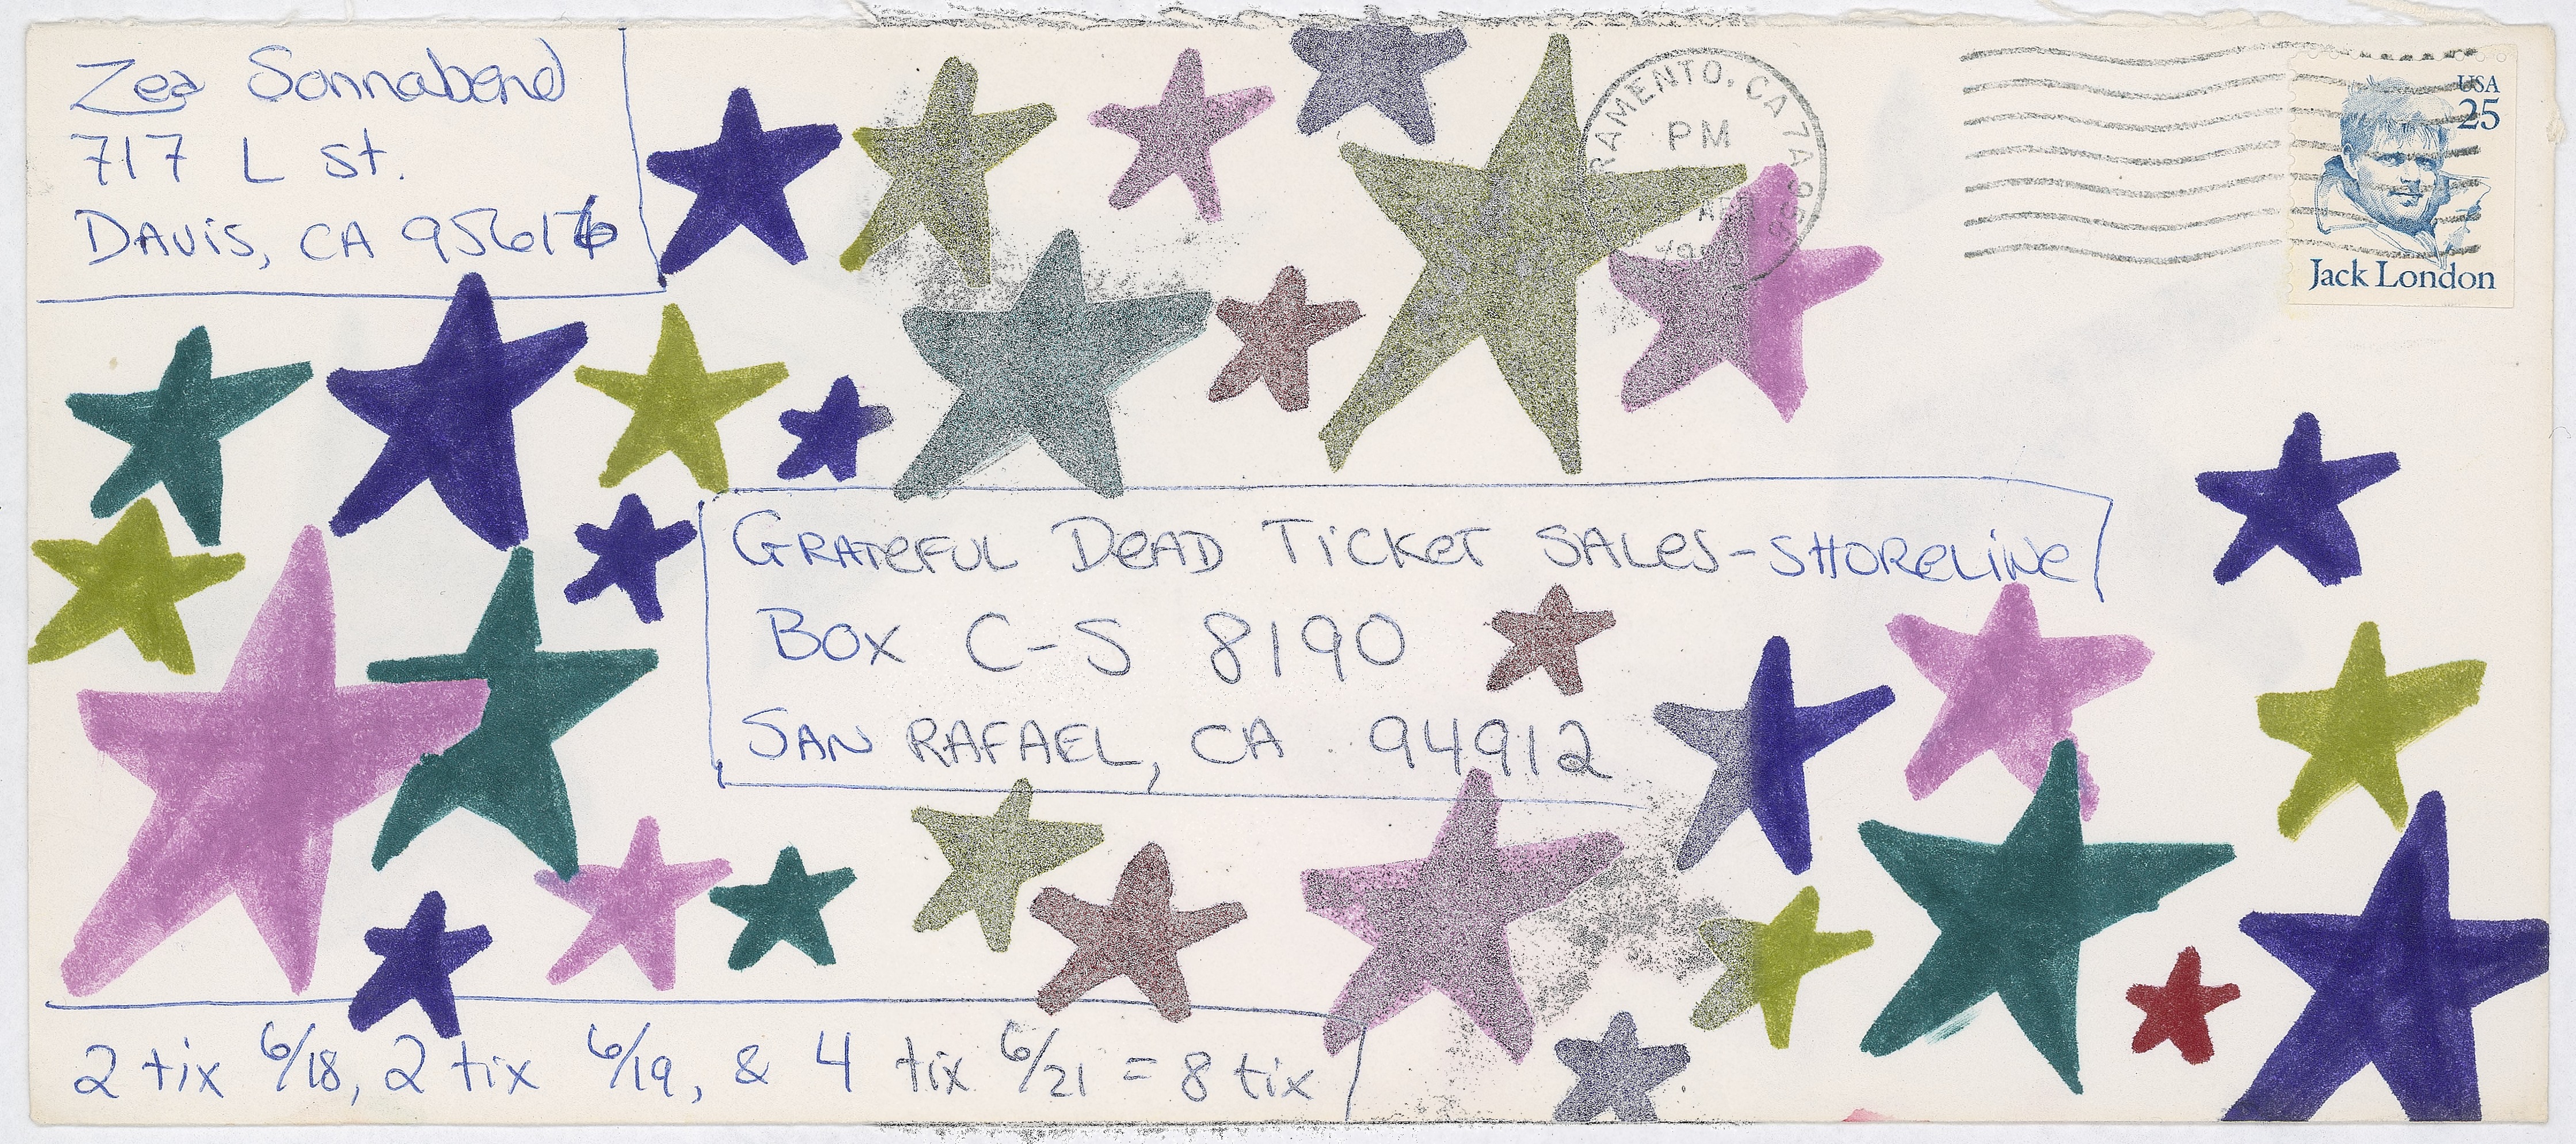 Zea Sonnabend
717 L St.
DAViS, CA 95616
RAMENTO, CA
PM
USA
25
Jack London
GRATeFUL DeAD TiCKeT SALeS-SHOReLiNe
BOX C-S 8190
SAN RAFAEL, CA 94912
2 tix 6/18, 2 tix 6/19, & 4 tix 6/21 = 8 tix